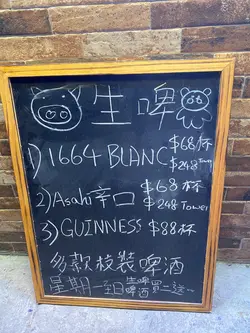 生啤
1) 1664 BLANC $68杯
$248 Tower
2) Asahi辛口 $68杯
$248 Tower
3) GUINNESS $88杯
多款枝裝啤酒
星期一至日 生啤 啤酒 買一送一